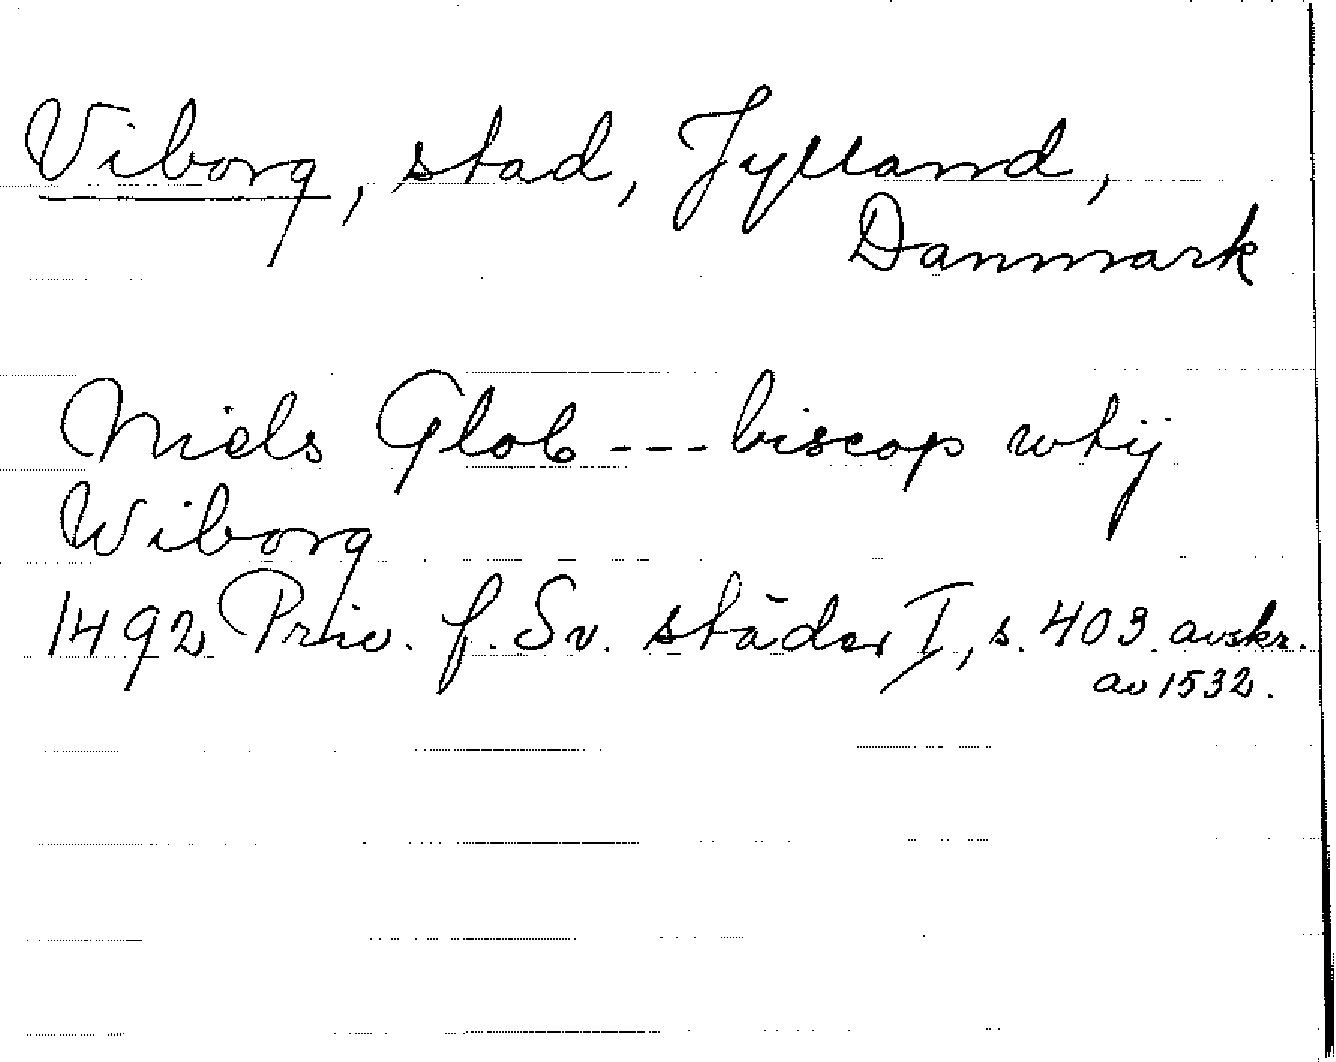 Viborg, stad, Jylland,
Danmark
Niels Glob --- biscop whij
Wiborg
1492 Priv. f. Sv. städer I, s. 403. avskr.
av 1532.